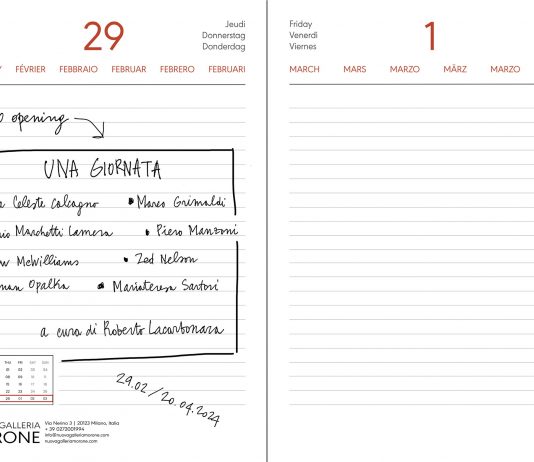 29
Jeudi
Donnerstag
Donderdag
FÉVRIER FEBBRAIO FEBRUAR FEBRERO FEBRUARI
opening
UNA GIORNATA
Celeste Calcagno • Marco Grimaldi
Marchetti Lamera • Piero Manzoni
McWilliams • Zed Nelson
Opalka • Mariateresa Sartori
a cura di Roberto Lacarbonara
THU FRI SAT SUN
01 02 03 04
08 09 10 11
15 16 17 18
22 23 24 25
29 01 02 03
29.02 / 20.04.2024
GALLERIA
RONE
Via Nerino 3 | 20123 Milano, Italia
+ 39 0272001994
info@nuovagalleriamorone.com
nuovagalleriamorone.com
Friday
Venerdì
Viernes
1
MARCH MARS MARZO MÄRZ MARZO